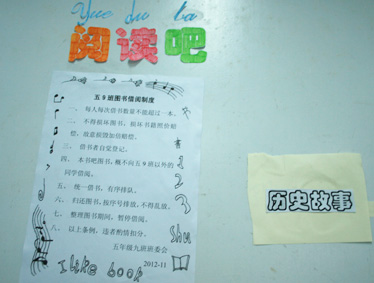 Yue du ba
阅读吧
五9班图书借阅制度
一、每人每次借书数量不能超过一本。
二、不得损坏图书，损坏书籍照价赔
偿，故意毁毁加倍赔偿。
三、借书者自觉登记。
四、本书吧图书，概不向五9班以外的
同学借阅。
五、统一借书，有序排队。
六、归还图书，按序号排放，不得乱放。
七、整理图书期间，暂停借阅。
八、以上条例，违者酌情扣分。
五年级九班班委会
2012-11
I like book
1
2
3
Shu
历史故事